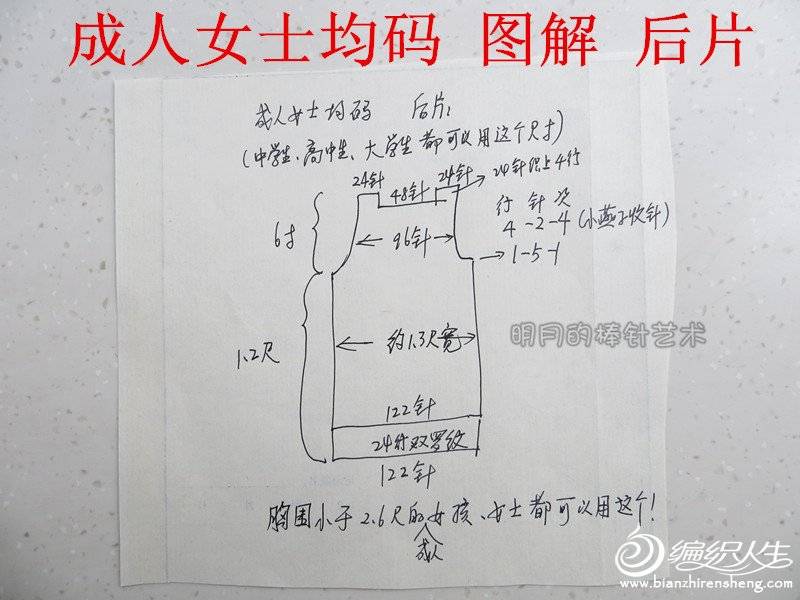 成人女士均码 图解 后片
成人女士均码 后片:
(中学生、高中生、大学生都可以用这个尺寸)
24针 48针 24针 24针织上4行
行 针 次
4-2-4 (小燕子收针)
6寸 96针 1-5-1
明月的棒针艺术
1.2尺 约1.3尺宽
122针
24行双罗纹
122针
胸围小于2.6尺的女孩、女士都可以用这个!
成人
编织人生
www.bianzhirensheng.com